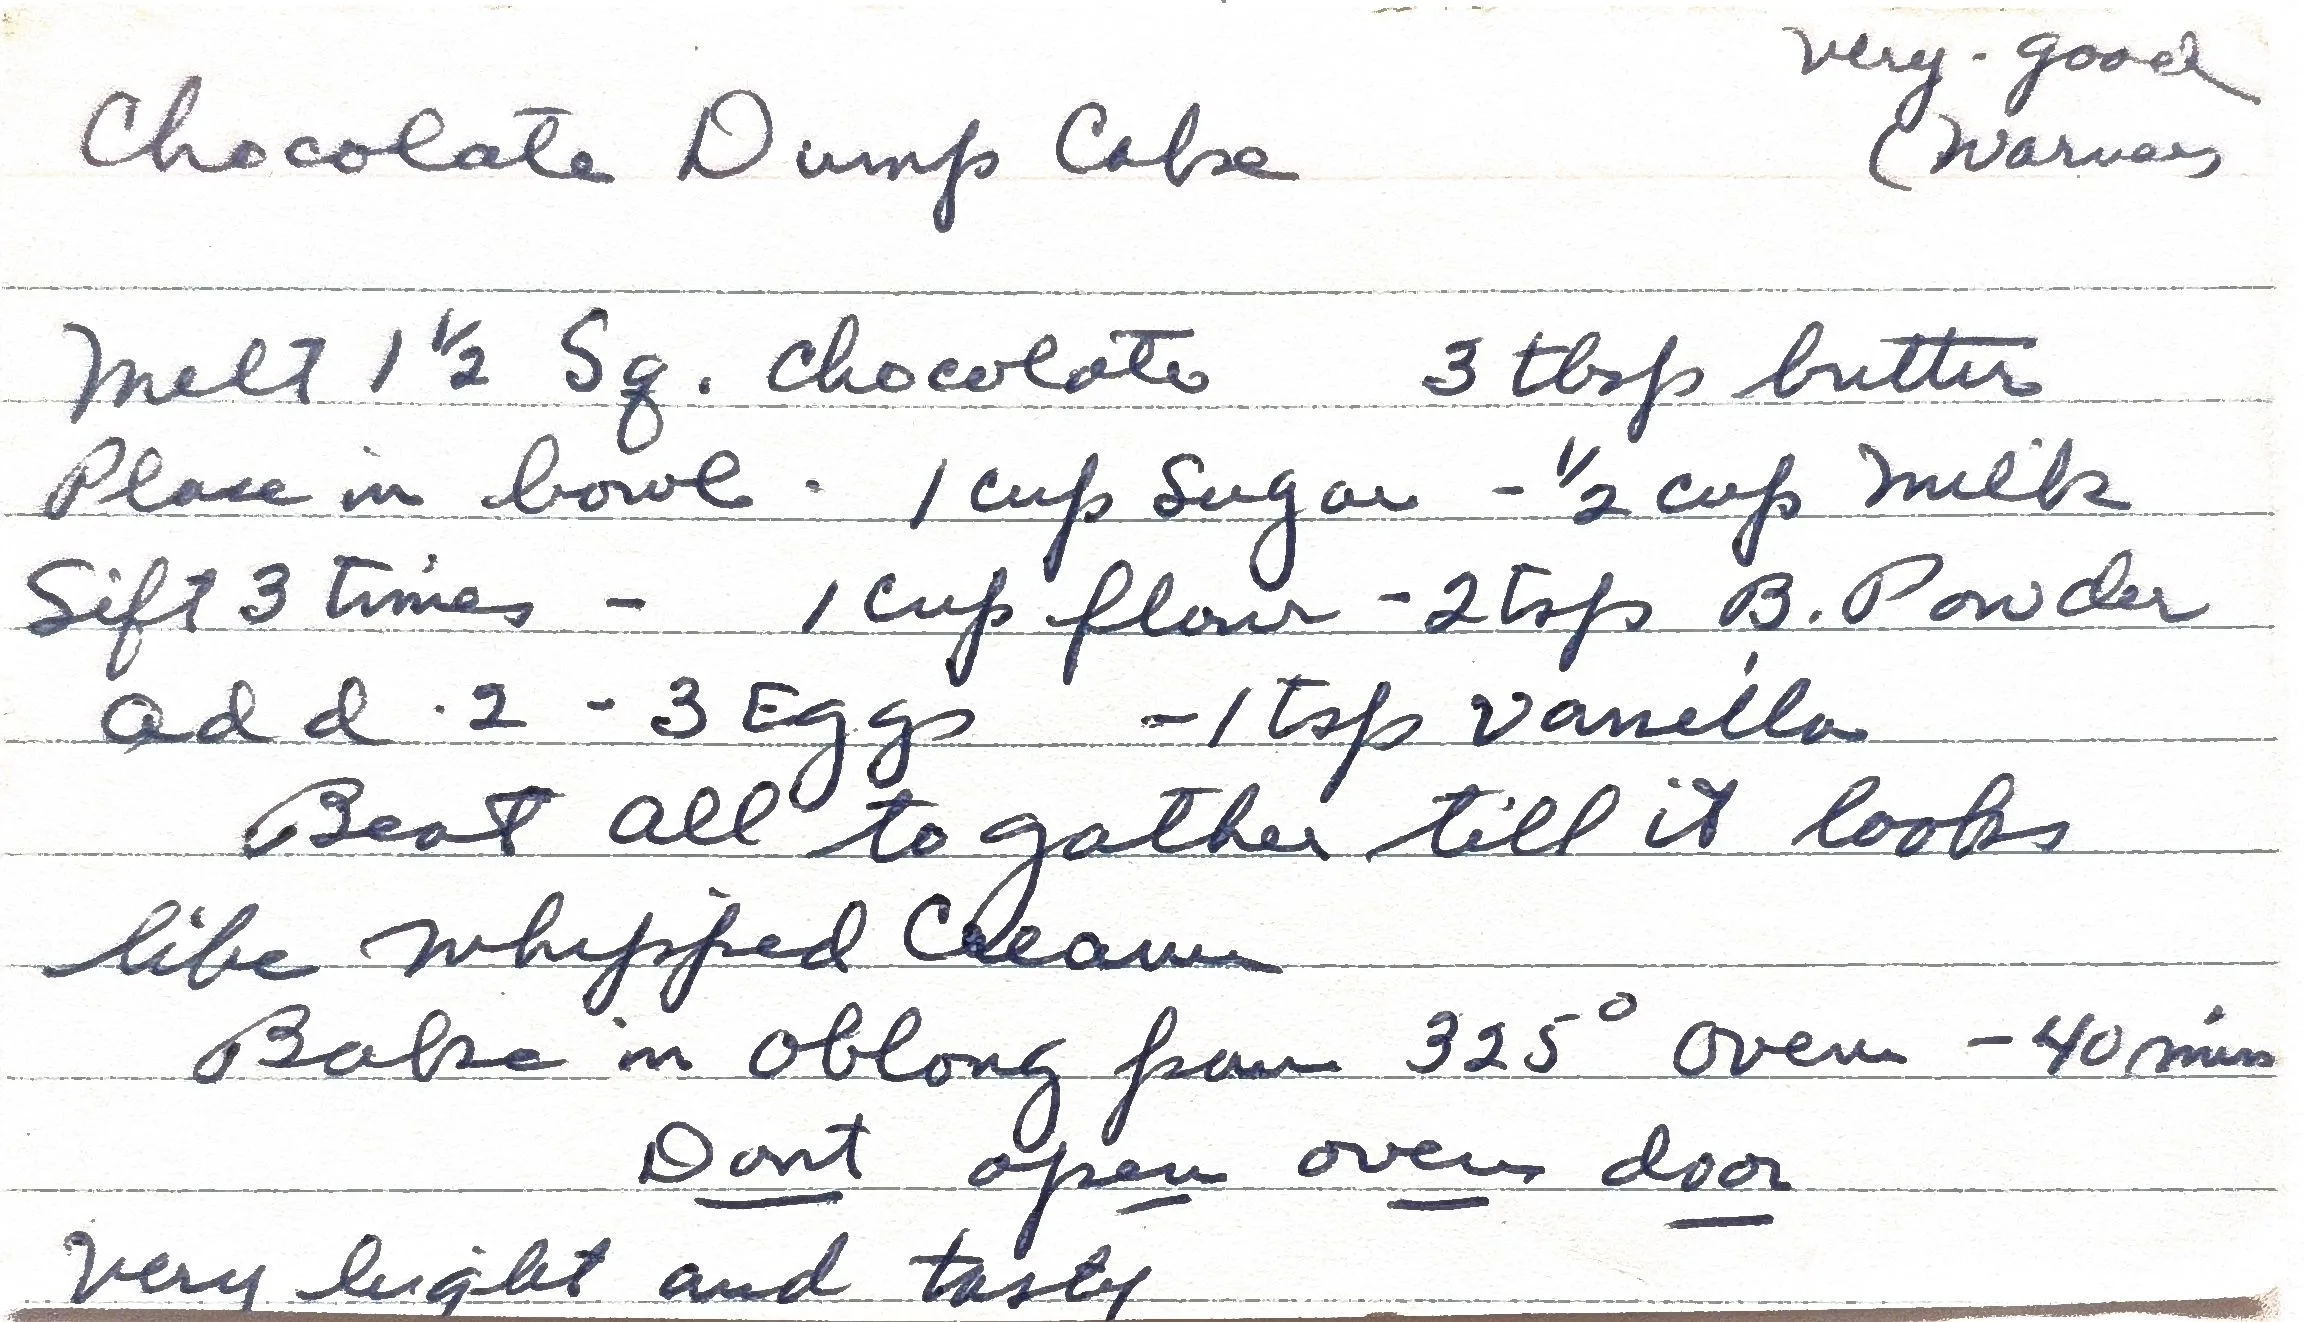 very - good
Chocolate Dump Cake
Melt 1 1/2 Sq. chocolate 3 tbsp butter
Place in bowl . 1 cup Sugar - 1/2 cup Milk
Sift 3 times - 1 cup flour - 2 tsp B. Powder
add . 2 - 3 Eggs - 1 tsp vanilla
Beat all togather till it looks
like whipped Cream
Bake in oblong pan 325° oven - 40 mins
Dont open oven door
Very light and tasty